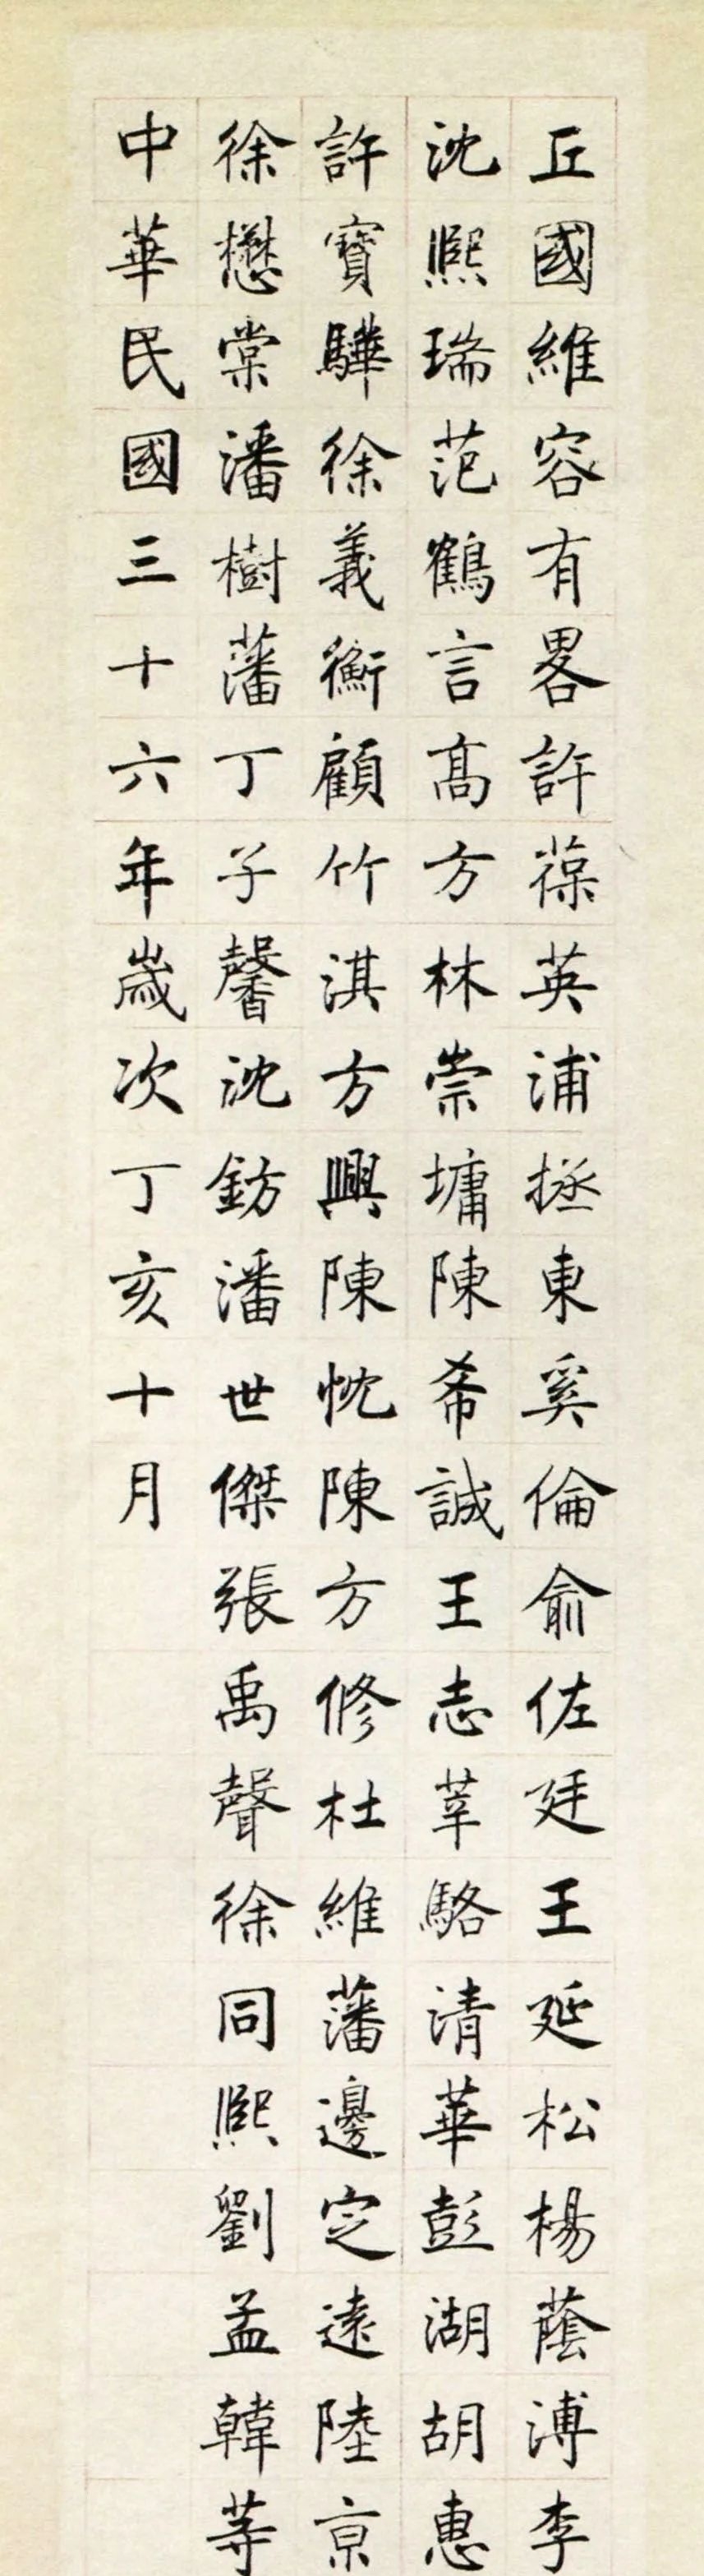 丘國維容有畧許葆英浦拯東奚倫俞佐廷王延松楊蔭溥李
沈熙瑞范鶴言髙方林崇墉陳希誠王志莘駱清華彭湖胡惠
許寶驊徐義衡顧竹淇方興陳忱陳方修杜維藩邊定遠陸京
徐懋棠潘樹藩丁子馨沈鈁潘世傑張禹聲徐同熙劉孟韓等
中華民國三十六年歲次丁亥十月